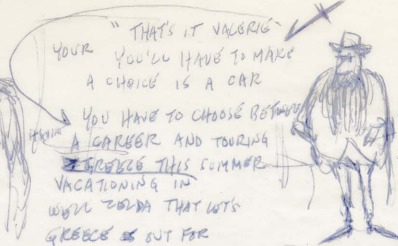 "THAT'S IT VALERIE
YOUR YOU'LL HAVE TO MAKE
A CHOICE IS A CAR
YOU HAVE TO CHOOSE BETWEEN
A CAREER AND TOURING
GREECE THIS SUMMER
VACATIONING IN
WELL ZELDA THAT LET'S
GREECE OUT FOR